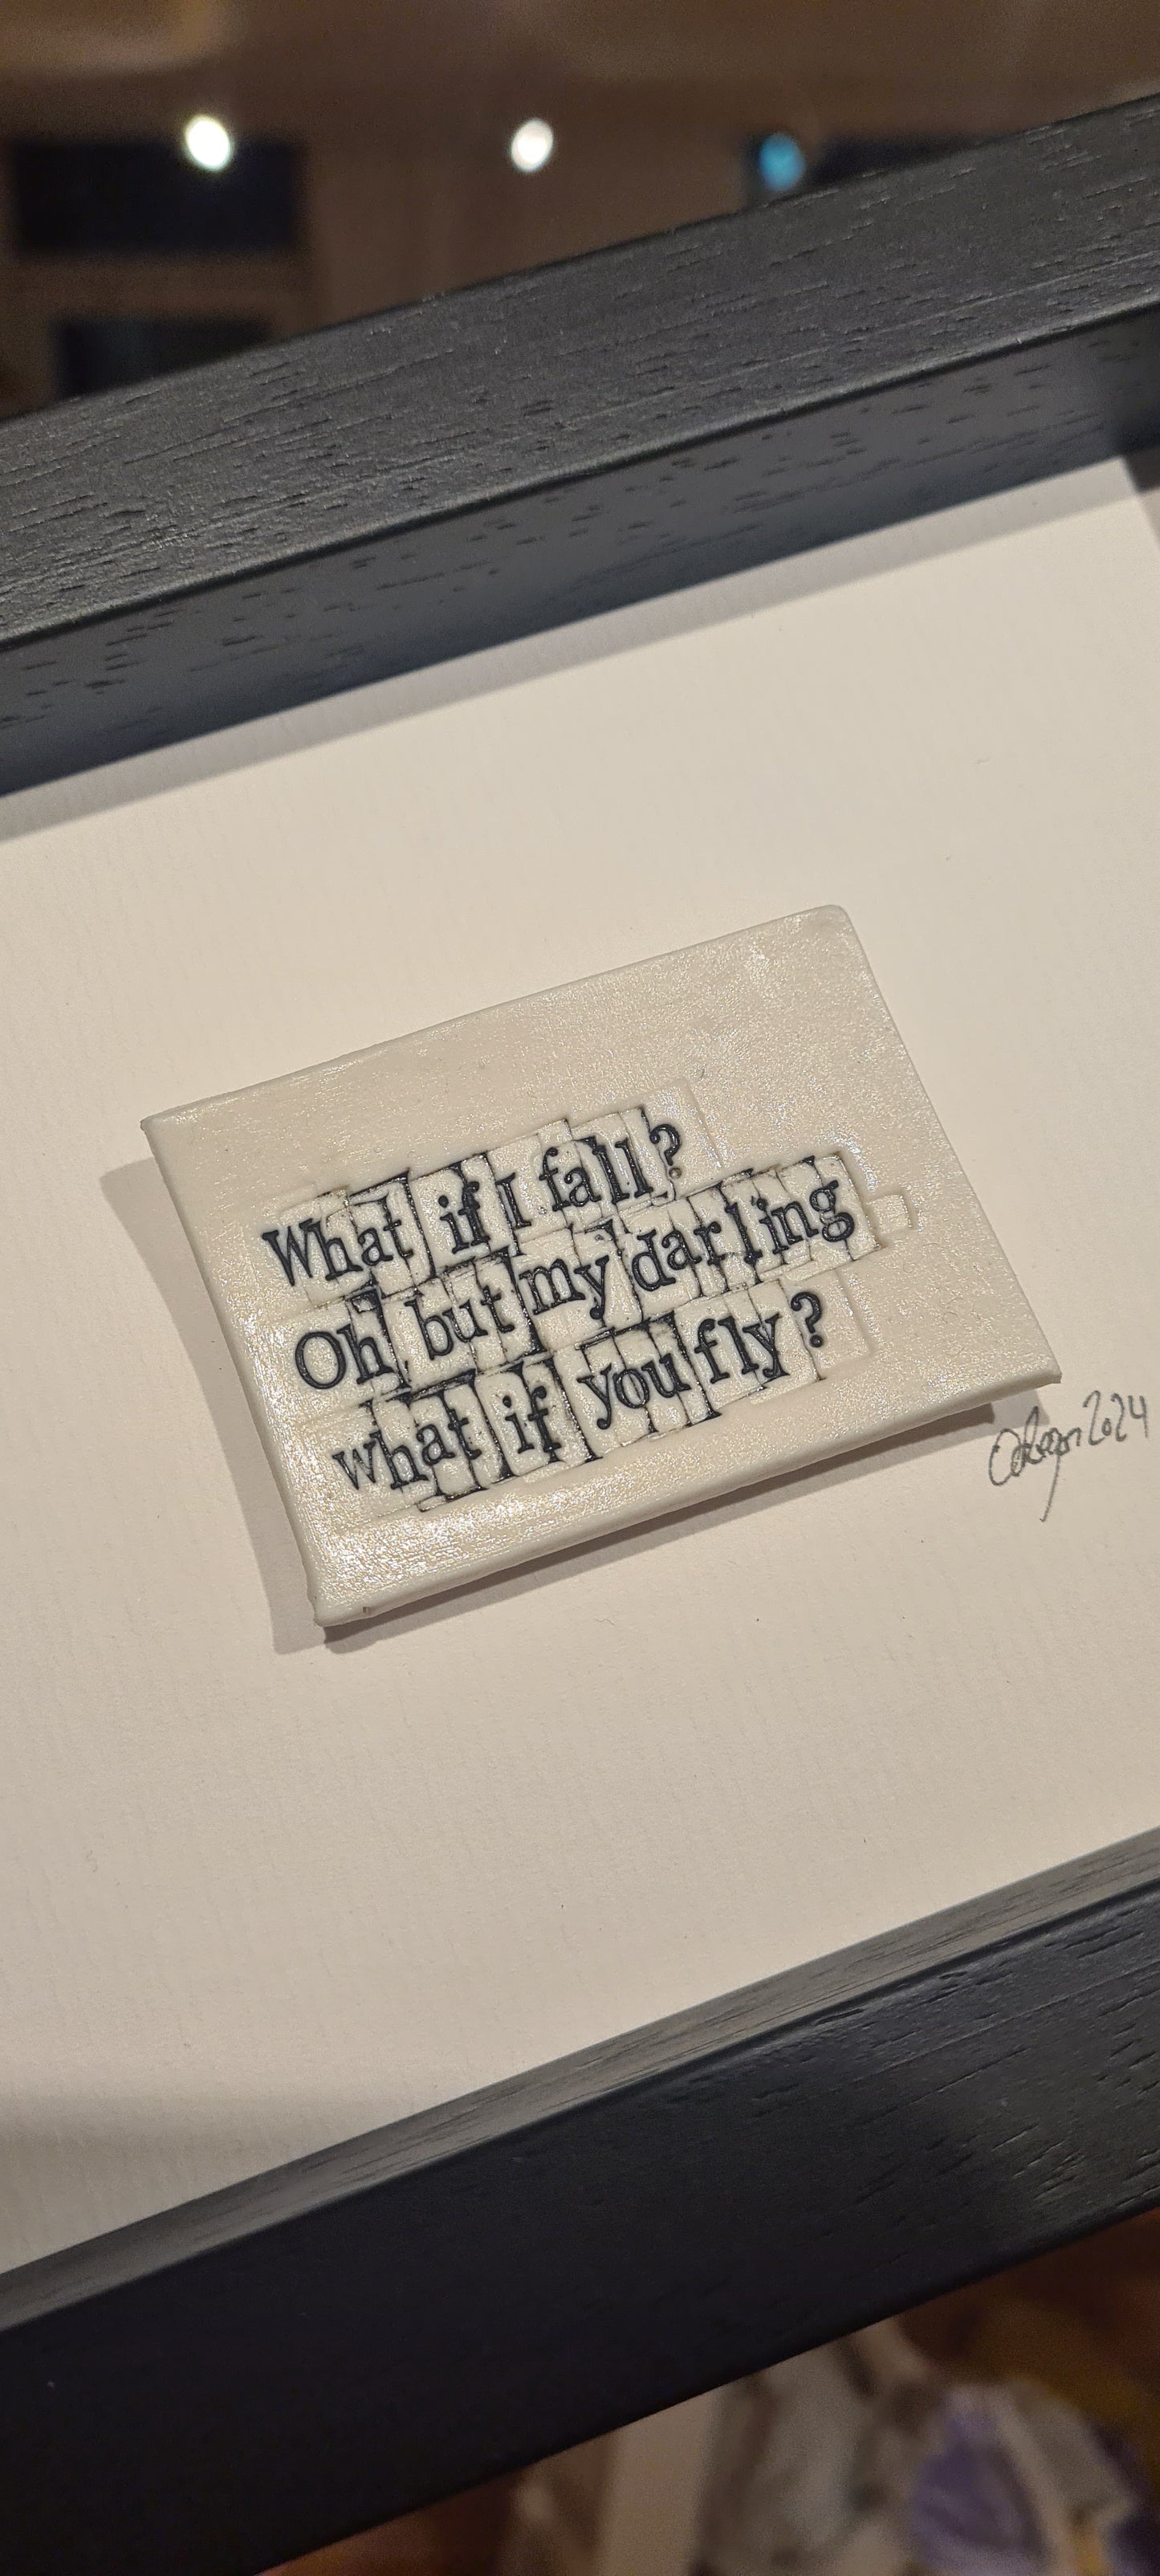 What if I fall?
Oh, but my darling
what if you fly?
2024